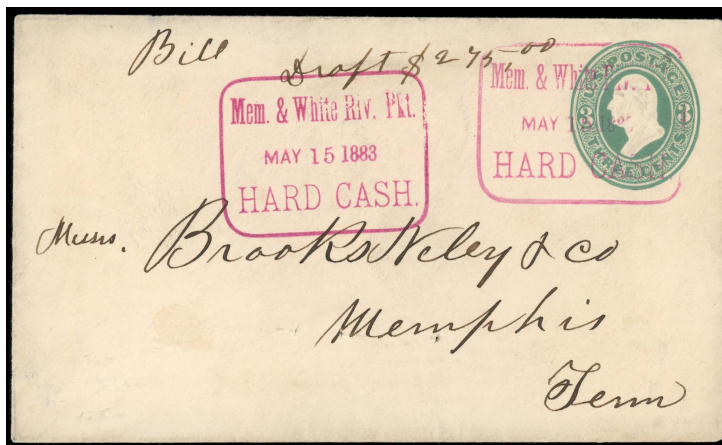 Bill
Draft $275.00
Mem. & White Riv. Pkt.
MAY 15 1883
HARD CASH.
Mem. & White
MAY 1
HARD
U.S. POSTAGE
3 3
THREE CENTS
Messrs. Brooks Neley & co
Memphis
Tenn